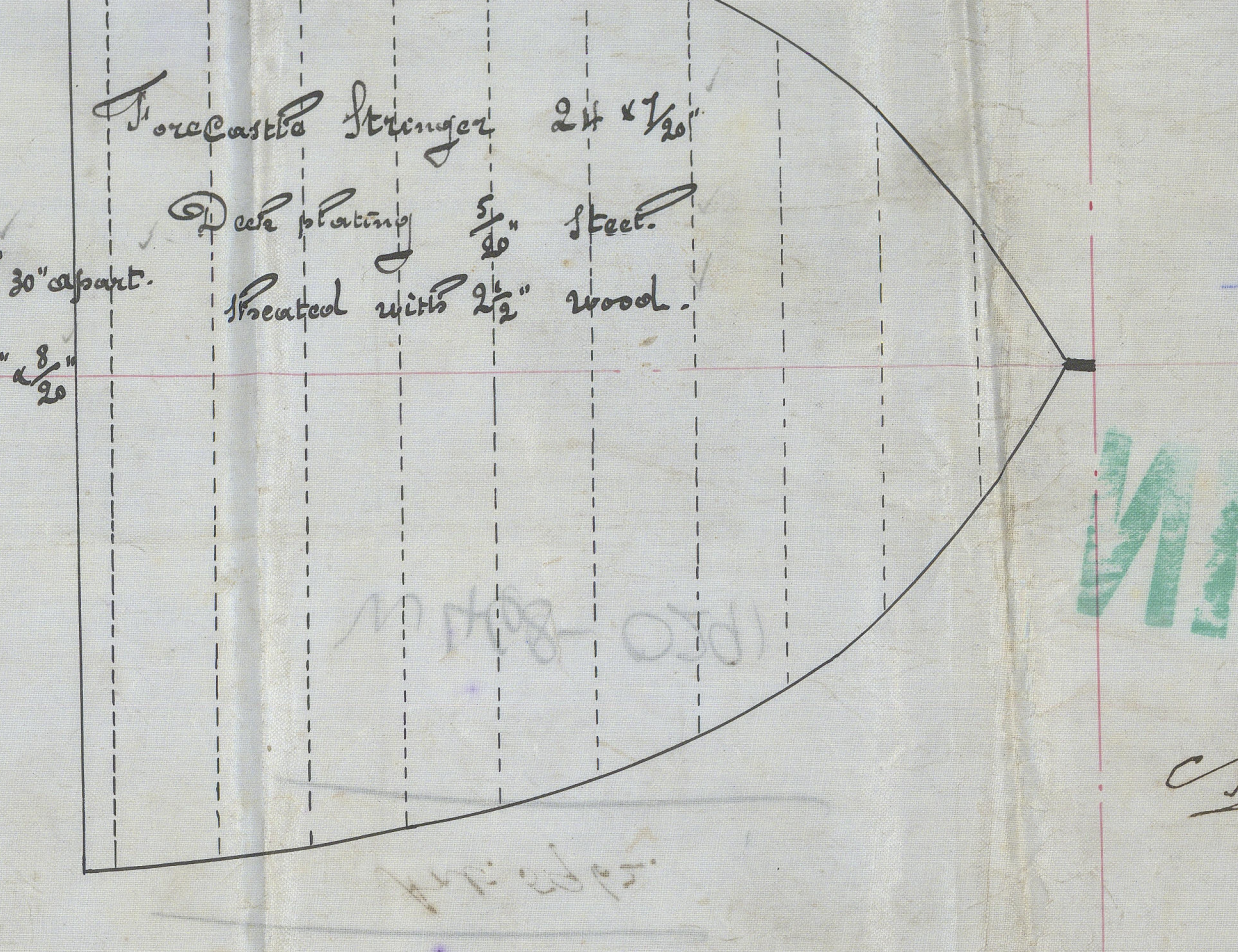 Forecastle Stringer 24 x 7/20"
Deck plating 5/20" Steel.
30" apart.
Sheated with 2 1/2" wood.
" x 8/20"